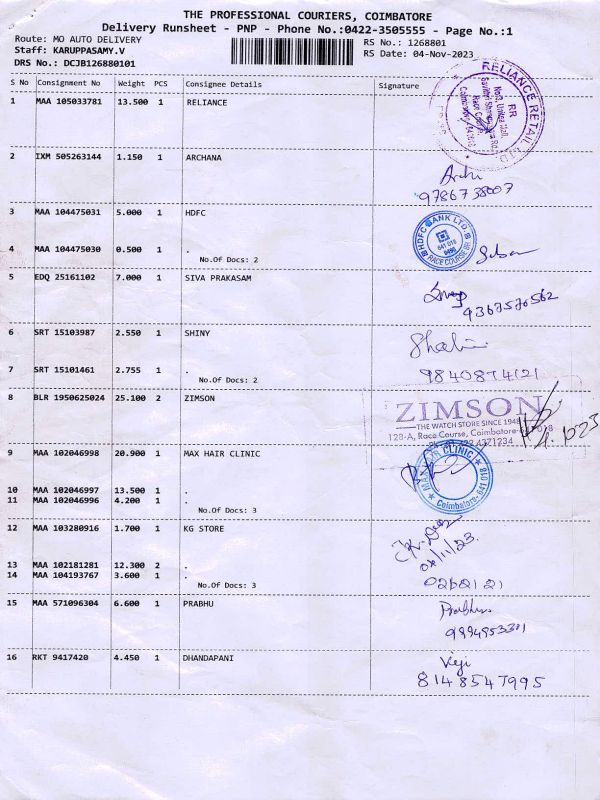 THE PROFESSIONAL COURIERS, COIMBATORE
Delivery Runsheet - PNP - Phone No.:0422-3505555 - Page No.:1
Route: MO AUTO DELIVERY
RS No.: 1268801
Staff: KARUPPASAMY.V
RS Date: 04-Nov-2023
DRS No.: DCJB126880101
S No Consignment No Weight PCS Consignee Details Signature
1 MAA 105033781 13.500 1 RELIANCE
RELIANCE RETAIL LTD
RR
Race Course
2 IXM 505263144 1.150 1 ARCHANA
3 MAA 104475031 5.000 1 HDFC
HDFC BANK LTD.
641 018
RACE COURSE BR.
4 MAA 104475030 0.500 1 .
No.Of Docs: 2
5 EDQ 25161102 7.000 1 SIVA PRAKASAM
9367570562
6 SRT 15103987 2.550 1 SHINY
7 SRT 15101461 2.755 1 .
No.Of Docs: 2
8 BLR 1950625024 25.100 2 ZIMSON
ZIMSON
THE WATCH STORE SINCE 1948
Race Course, Coimbatore-641 018
9 MAA 102046998 20.900 1 MAX HAIR CLINIC
CLINIC
Coimbatore-641 018
10 MAA 102046997 13.500 1 .
11 MAA 102046996 4.200 1 .
No.Of Docs: 3
12 MAA 103280916 1.700 1 KG STORE
04/11/23.
13 MAA 102181281 12.300 2 .
14 MAA 104193767 3.600 1 .
No.Of Docs: 3
15 MAA 571096304 6.600 1 PRABHU
Prabhu
16 RKT 9417420 4.450 1 DHANDAPANI
Viji
8148547995